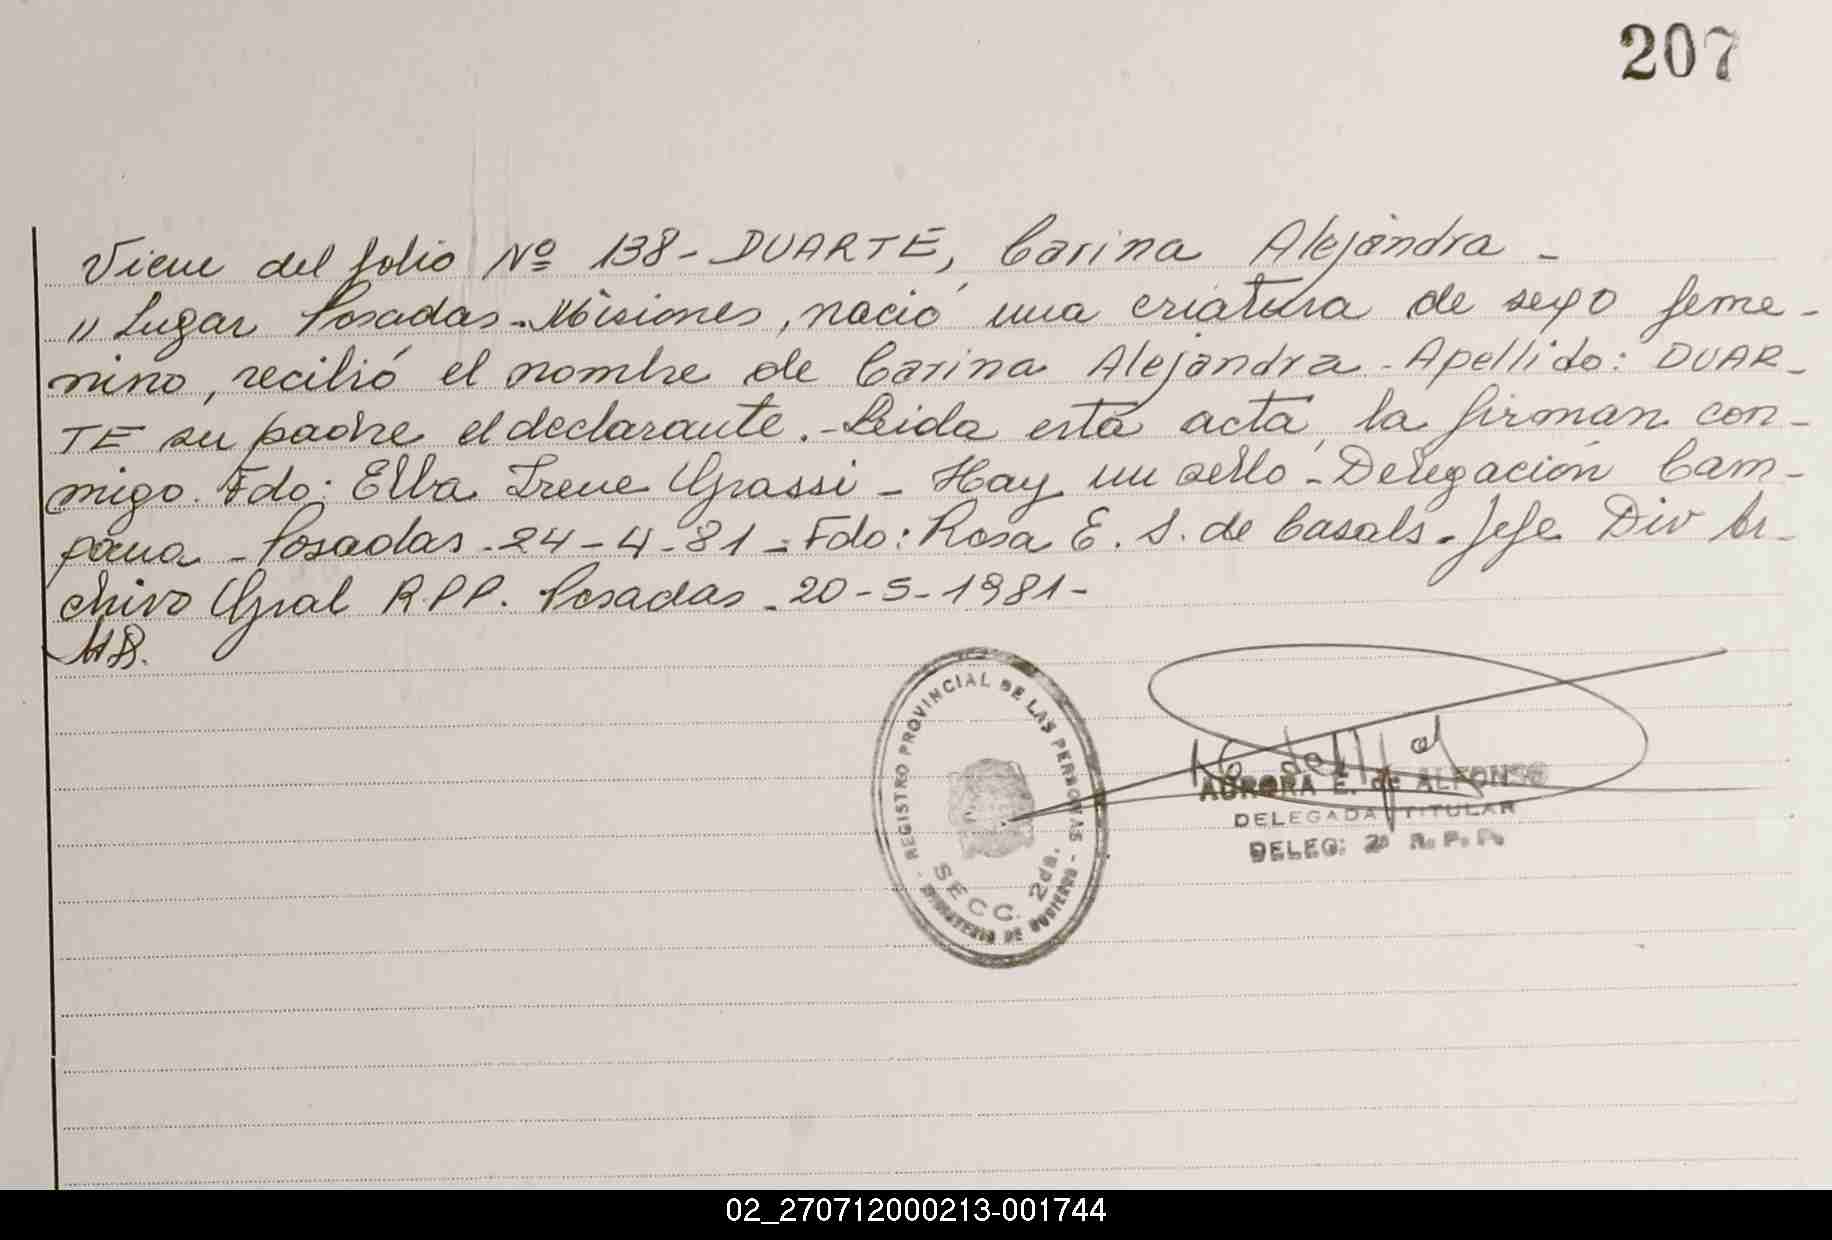 207
Viene del folio Nº 138 - DUARTE, Carina Alejandra -
" Lugar Posadas - Misiones, nació una criatura de sexo feme-
nino, recibió el nombre de Carina Alejandra - Apellido: DUAR-
TE su padre el declarante. - Leida esta acta, la firman con-
migo. Fdo: Elba Irene Grassi - Hay un sello - Delegación Cam-
pana - Posadas - 24-4-81 - Fdo: Rosa E. S. de Casals - Jefe Div Ar-
chivo Gral R.P.P. Posadas - 20-5-1981 -
REGISTRO PROVINCIAL DE LAS PERSONAS
SECC. 2da.
MINISTERIO DE GOBIERNO
AURORA E. de ALFONSO
DELEGADA TITULAR
DELEG: 2ª R. P. P.
02_270712000213-001744